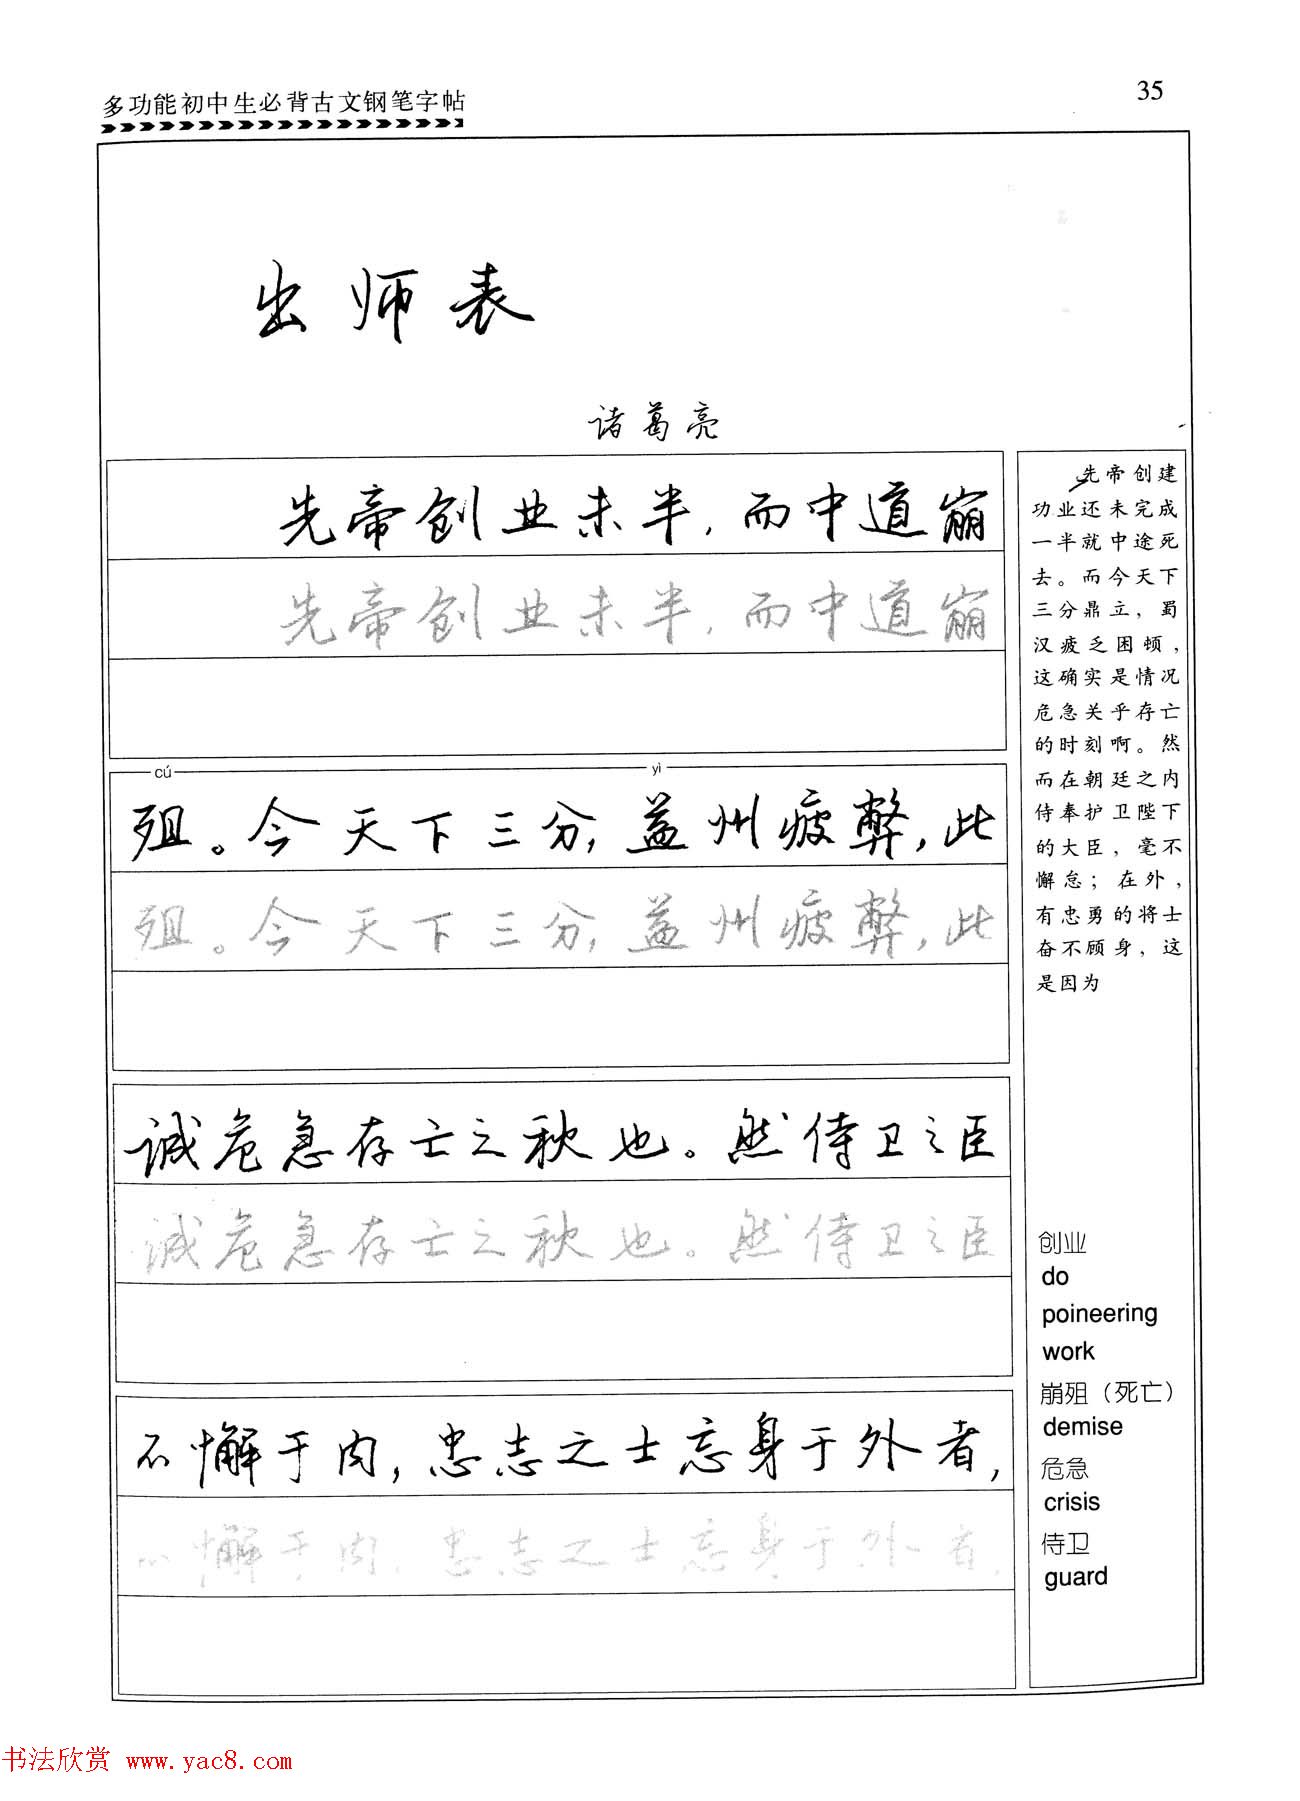 多功能初中生必背古文钢笔字帖
35
出师表
诸葛亮
先帝创业未半，而中道崩
先帝创业未半，而中道崩
cú yì
殂。今天下三分，益州疲弊，此
殂。今天下三分，益州疲弊，此
诚危急存亡之秋也。然侍卫之臣
诚危急存亡之秋也。然侍卫之臣
不懈于内，忠志之士忘身于外者，
不懈于内，忠志之士忘身于外者，
先帝创建
功业还未完成
一半就中途死
去。而今天下
三分鼎立，蜀
汉疲乏困顿，
这确实是情况
危急关乎存亡
的时刻啊。然
而在朝廷之内
侍奉护卫陛下
的大臣，毫不
懈怠；在外，
有忠勇的将士
奋不顾身，这
是因为
创业
do
poineering
work
崩殂（死亡）
demise
危急
crisis
侍卫
guard
书法欣赏 www.yac8.com